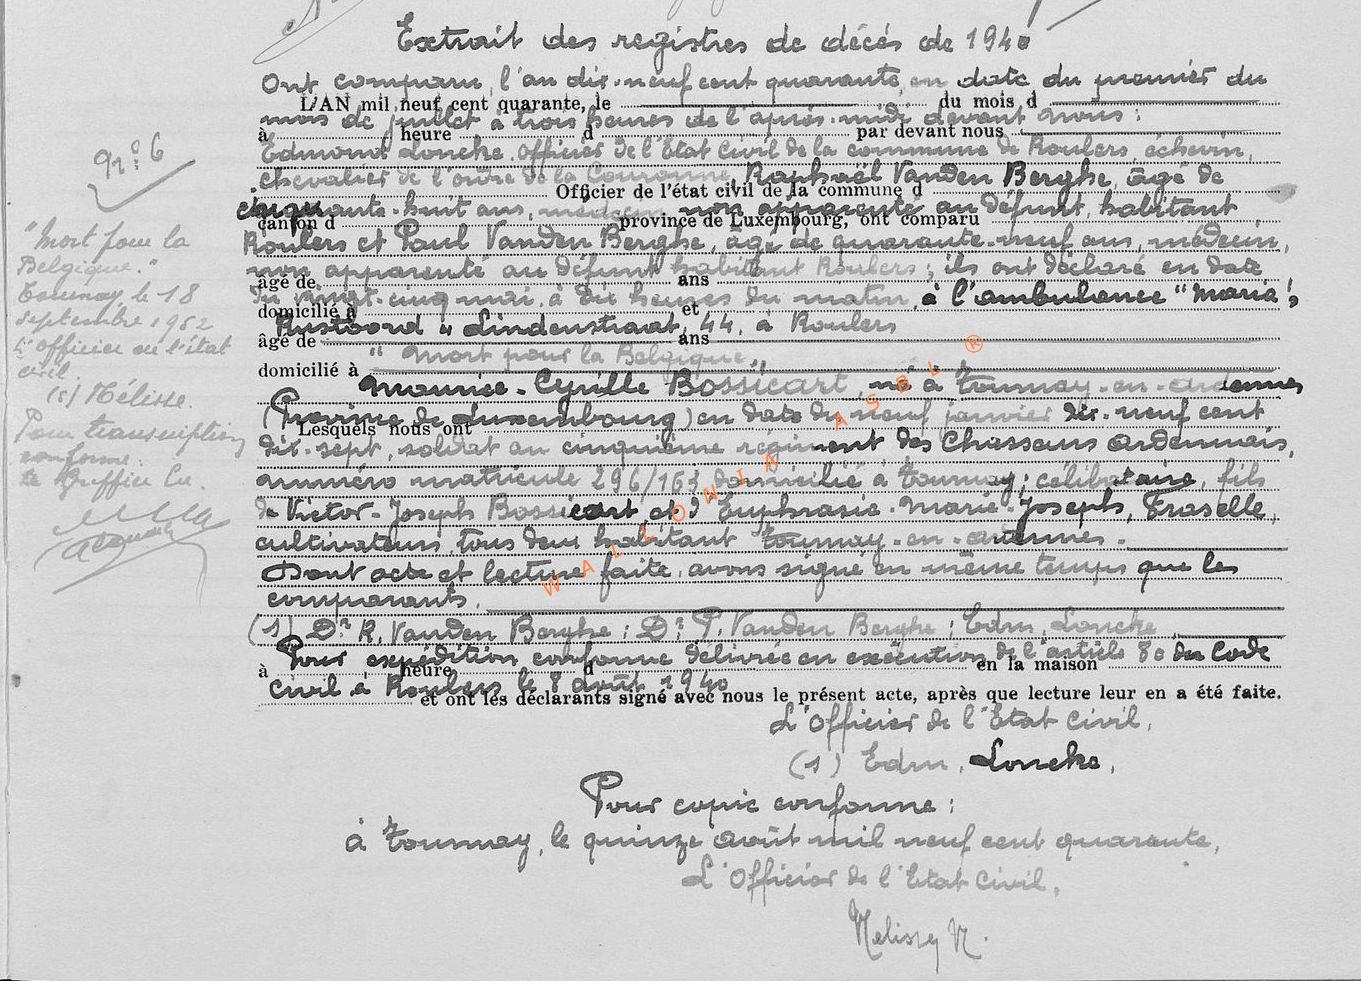 Extrait des registres de décès de 1940
Ont comparu, l'an dix-neuf cent quarante, en date du premier du
L'AN mil neuf cent quarante, le du mois d
mois de juillet à trois heures de l'après-midi devant nous :
à heure d par devant nous
Edmond Loncke, officier de l'Etat Civil de la commune de Roulers, échevin,
chevalier de l'ordre de la Couronne, Raphaël Vanden Berghe, âgé de
Officier de l'état civil de la commune d
cinquante-huit ans, médecin, non apparenté au défunt, habitant
canton d province de Luxembourg, ont comparu
Roulers et Paul Vanden Berghe, âgé de quarante-neuf ans, médecin,
non apparenté au défunt habitant Roulers ; ils ont déclaré en date
âgé de ans
du vingt-cinq mai, à dix heures du matin, à l'ambulance "Maria's
domicilié à et
Rustoord" Lindenstraat, 44, à Roulers
âgé de ans
"Mort pour la Belgique"
domicilié à
Maurice-Cyrille Bossicart, né à Tournay-en-Ardennes
(Province de Luxembourg) en date du neuf janvier dix-neuf cent
Lesquels nous ont
dix-sept, soldat au cinquième régiment des Chasseurs ardennais,
numéro matricule 296/163 domicilié à Tournay ; célibataire, fils
de Victor-Joseph Bossicart et d'Euphrasie-Marie-Joseph, Fraselle,
cultivateurs, tous deux habitant Tournay-en-Ardennes.
Dont acte et lecture faite, avons signé en même temps que les
comparants.
(s) Dr R. Vanden Berghe ; Dr P. Vanden Berghe ; Edm. Loncke
Pour expédition conforme délivrée en exécution de l'article 80 du Code
à heure d en la maison
Civil à Roulers le 8 août 1940
et ont les déclarants signé avec nous le présent acte, après que lecture leur en a été faite.
L'Officier de l'Etat Civil,
(s) Edm. Loncke,
Pour copie conforme :
à Tournay, le quinze août mil neuf cent quarante,
L'Officier de l'Etat Civil,
Melissen N.
N° 6
"Mort pour la
Belgique."
Tournay, le 18
septembre 1952
L'officier de l'état
civil.
(s) Mélisse.
Pour transcription
conforme :
Le Greffier
WALLONIA ASBL ®